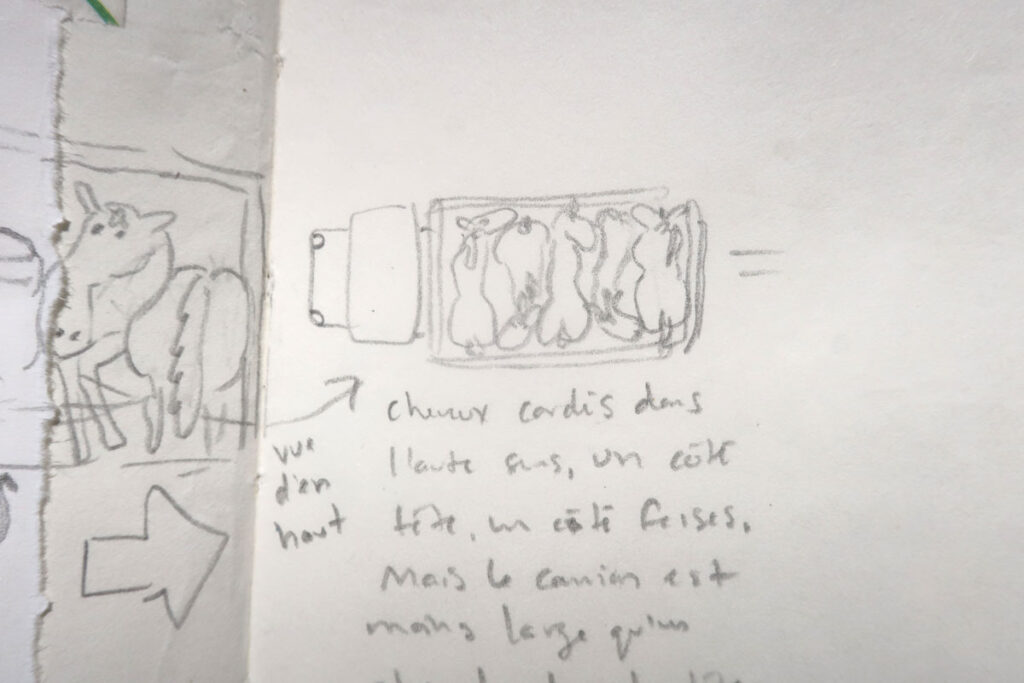 vue
d'en
haut
chevaux cordés dans
l'autre sens, un côté
tête, un côté fesses.
Mais le camion est
moins large qu'un